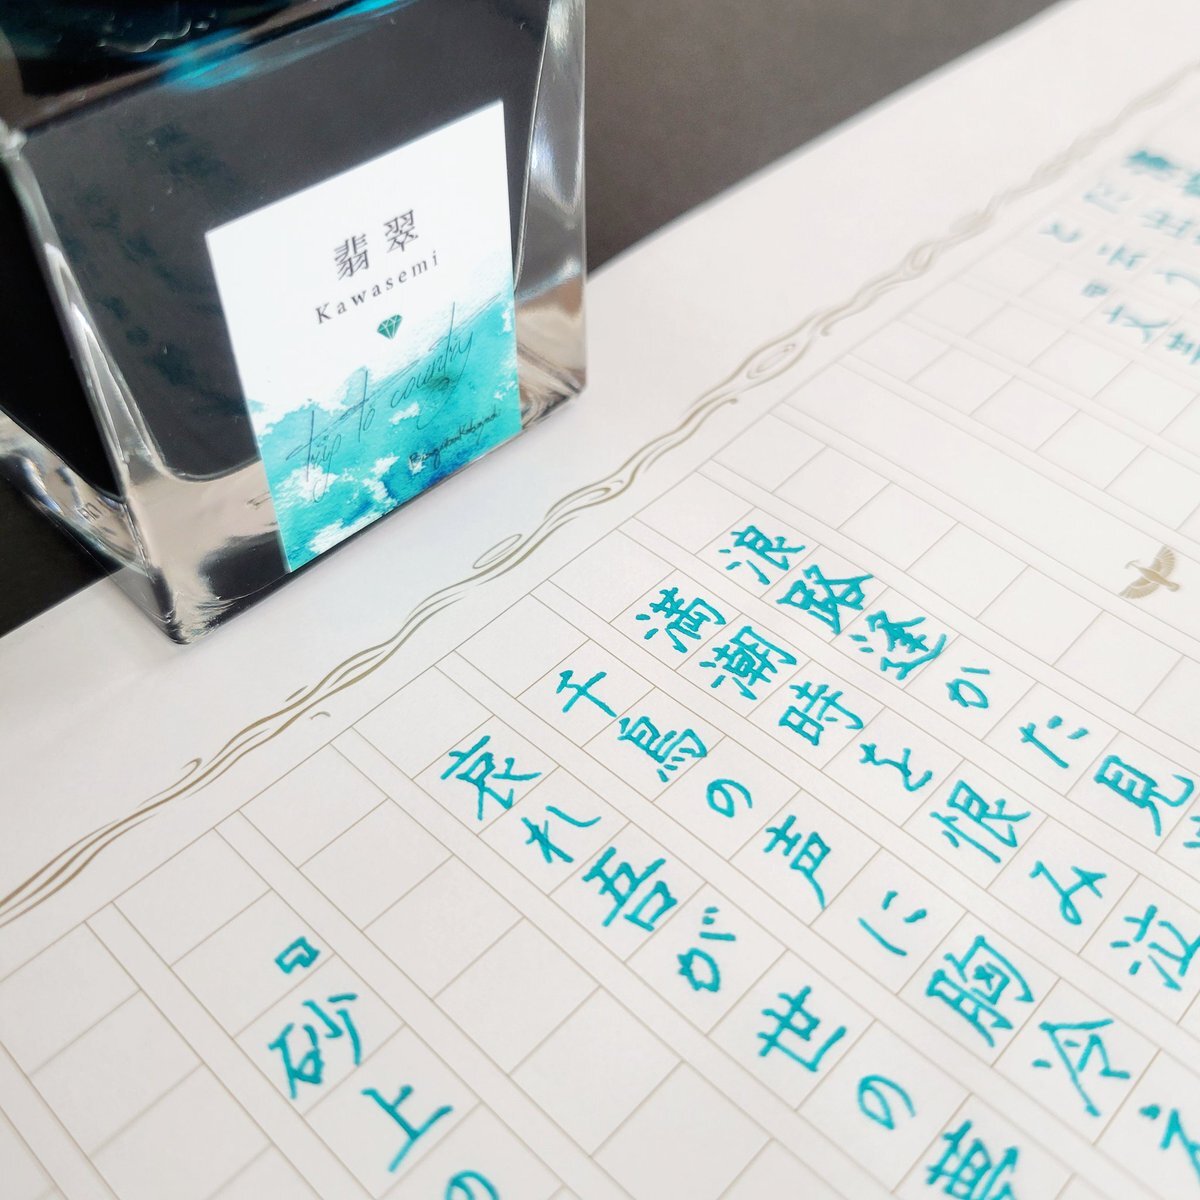 翡翠
Kawasemi
trip to country
だ出
と云う
浪路逢かだ見
満潮時を恨み泣
千鳥の声に胸冷え
哀れ吾が世の夢
『砂上の